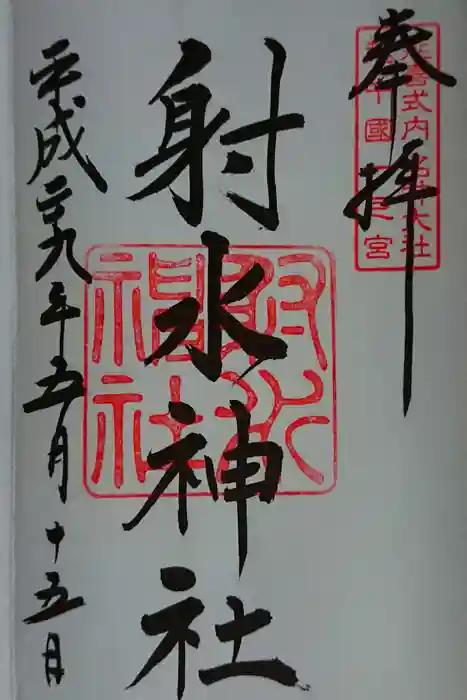 奉拝
延喜式内名神大社
越中國一之宮
射水神社
射水
神社
平成二十九年五月十五日